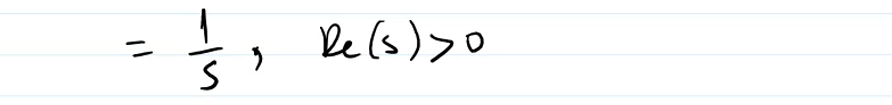 = 1/s , Re(s)>0